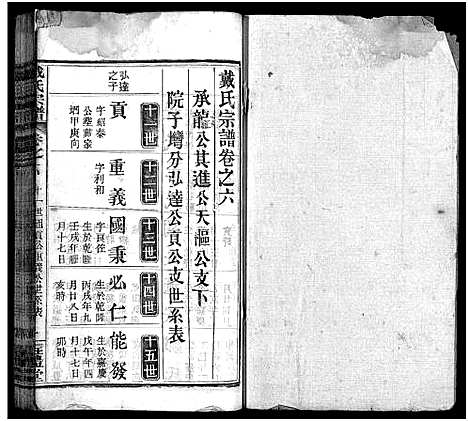 戴氏宗譜卷之六
承龍公其進公天漚公支下
院子灣分弘達公貢公支世系表
十一世
十二世
十三世
十四世
十五世
弘達
之子
貢
字紹泰
公塟蔚家
坰甲庚向
重義
字利和
國秉
字良在
生於乾隆
壬戌年
月十七日
必仁
生於乾隆
丙戌年九
月廿八日
亥時
能發
生於嘉慶
戊午年四
月十七日
卯時
戴氏宗譜